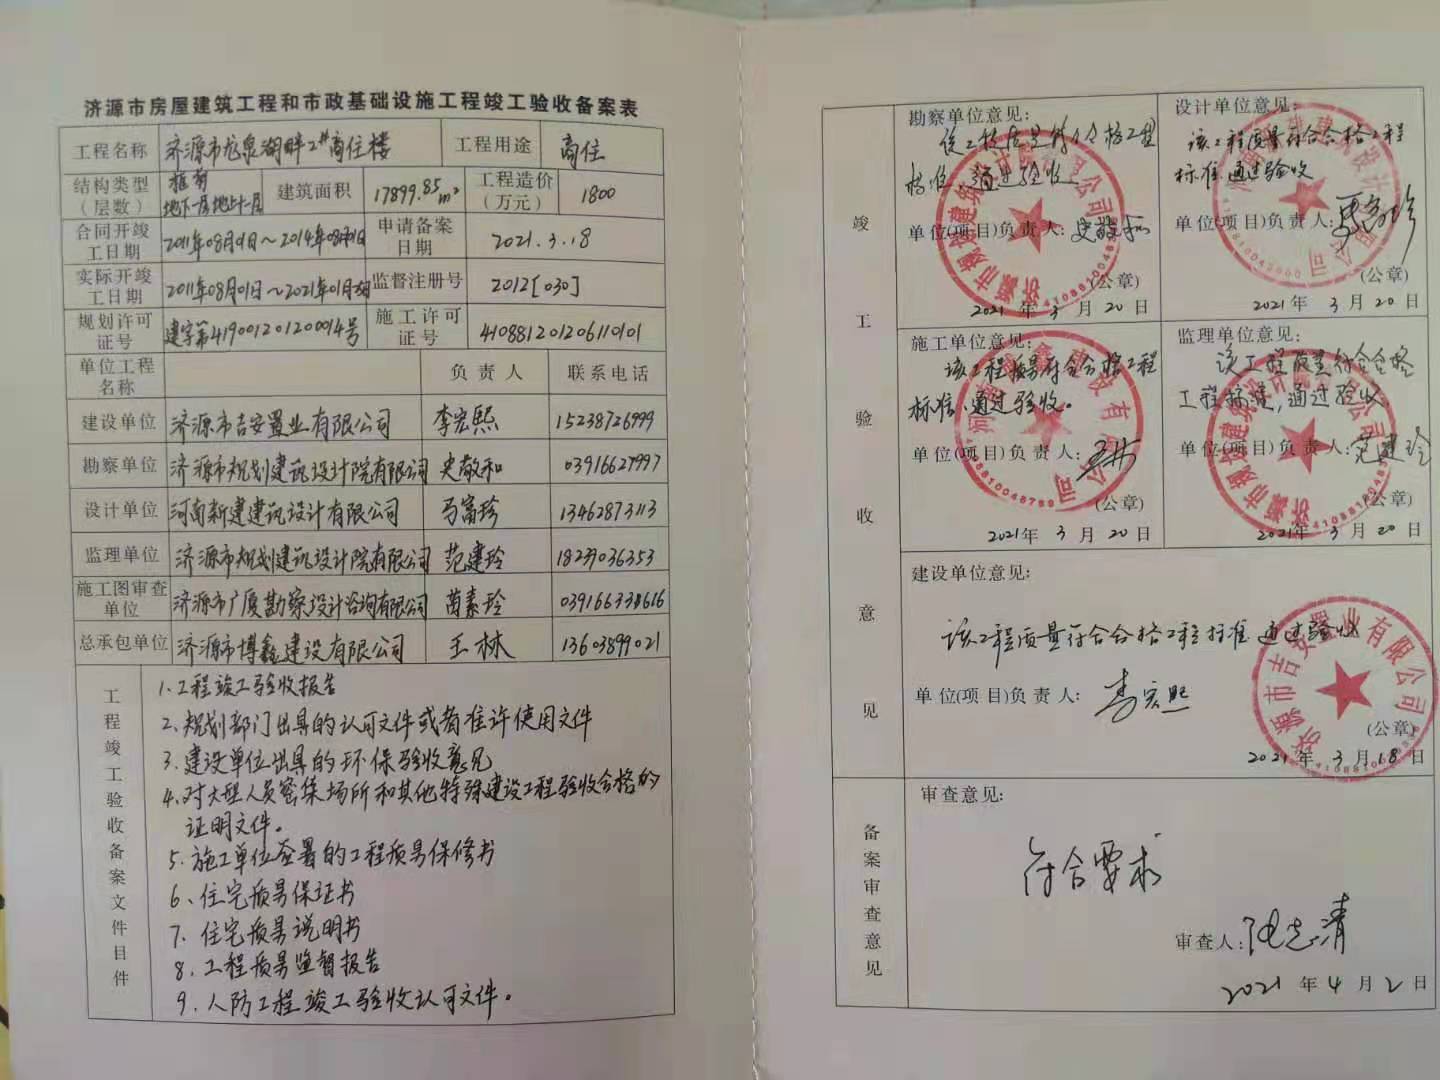 济源市房屋建筑工程和市政基础设施工程竣工验收备案表
工程名称 济源市龙泉湖畔2#商住楼 工程用途 商住
结构类型（层数） 框剪 地下一层地上十一层 建筑面积 17899.85m² 工程造价（万元） 1800
合同开竣工日期 2011年08月01日～2014年08月01日 申请备案日期 2021.3.18
实际开竣工日期 2011年08月01日～2021年01月 监督注册号 2012[030]
规划许可证号 建字第419001201200014号 施工许可证号 410881201206110101
单位工程名称 负责人 联系电话
建设单位 济源市吉安置业有限公司 李宏熙 15238726999
勘察单位 济源市规划建筑设计院有限公司 史敬和 03916627997
设计单位 河南新建建筑设计有限公司 马富珍 13462873113
监理单位 济源市规划建筑设计院有限公司 范建玲 18239036353
施工图审查单位 济源市广厦勘察设计咨询有限公司 苗素玲
总承包单位 济源市博鑫建设有限公司 王林 13603899021
工程竣工验收备案文件目件
1.工程竣工验收报告
2.规划部门出具的认可文件或者准许使用文件
3.建设单位出具的环保验收意见
4.对大型人员密集场所和其他特殊建设工程验收合格的
证明文件。
5.施工单位签署的工程质量保修书
6、住宅质量保证书
7、住宅质量说明书
8、工程质量监督报告
9、人防工程竣工验收认可文件。
竣工验收意见
勘察单位意见：
该工程质量符合合格工程
标准，通过验收
单位(项目)负责人：史敬和
(公章)
2021年 3月20日
设计单位意见：
该工程质量符合合格工程
标准通过验收
单位(项目)负责人：马富珍
(公章)
2021年 3月20日
施工单位意见：
该工程质量符合合格工程
标准，通过验收。
单位(项目)负责人：王林
(公章)
2021年 3月20日
监理单位意见：
该工程质量符合合格
工程标准，通过验收
单位(项目)负责人：范建玲
(公章)
2021年 3月20日
建设单位意见：
该工程质量符合合格工程标准 通过验收
单位(项目)负责人：李宏熙
(公章)
2021年 3月18日
济源市吉安置业有限公司
备案审查意见
审查意见：
符合要求
审查人：
2021年4月2日